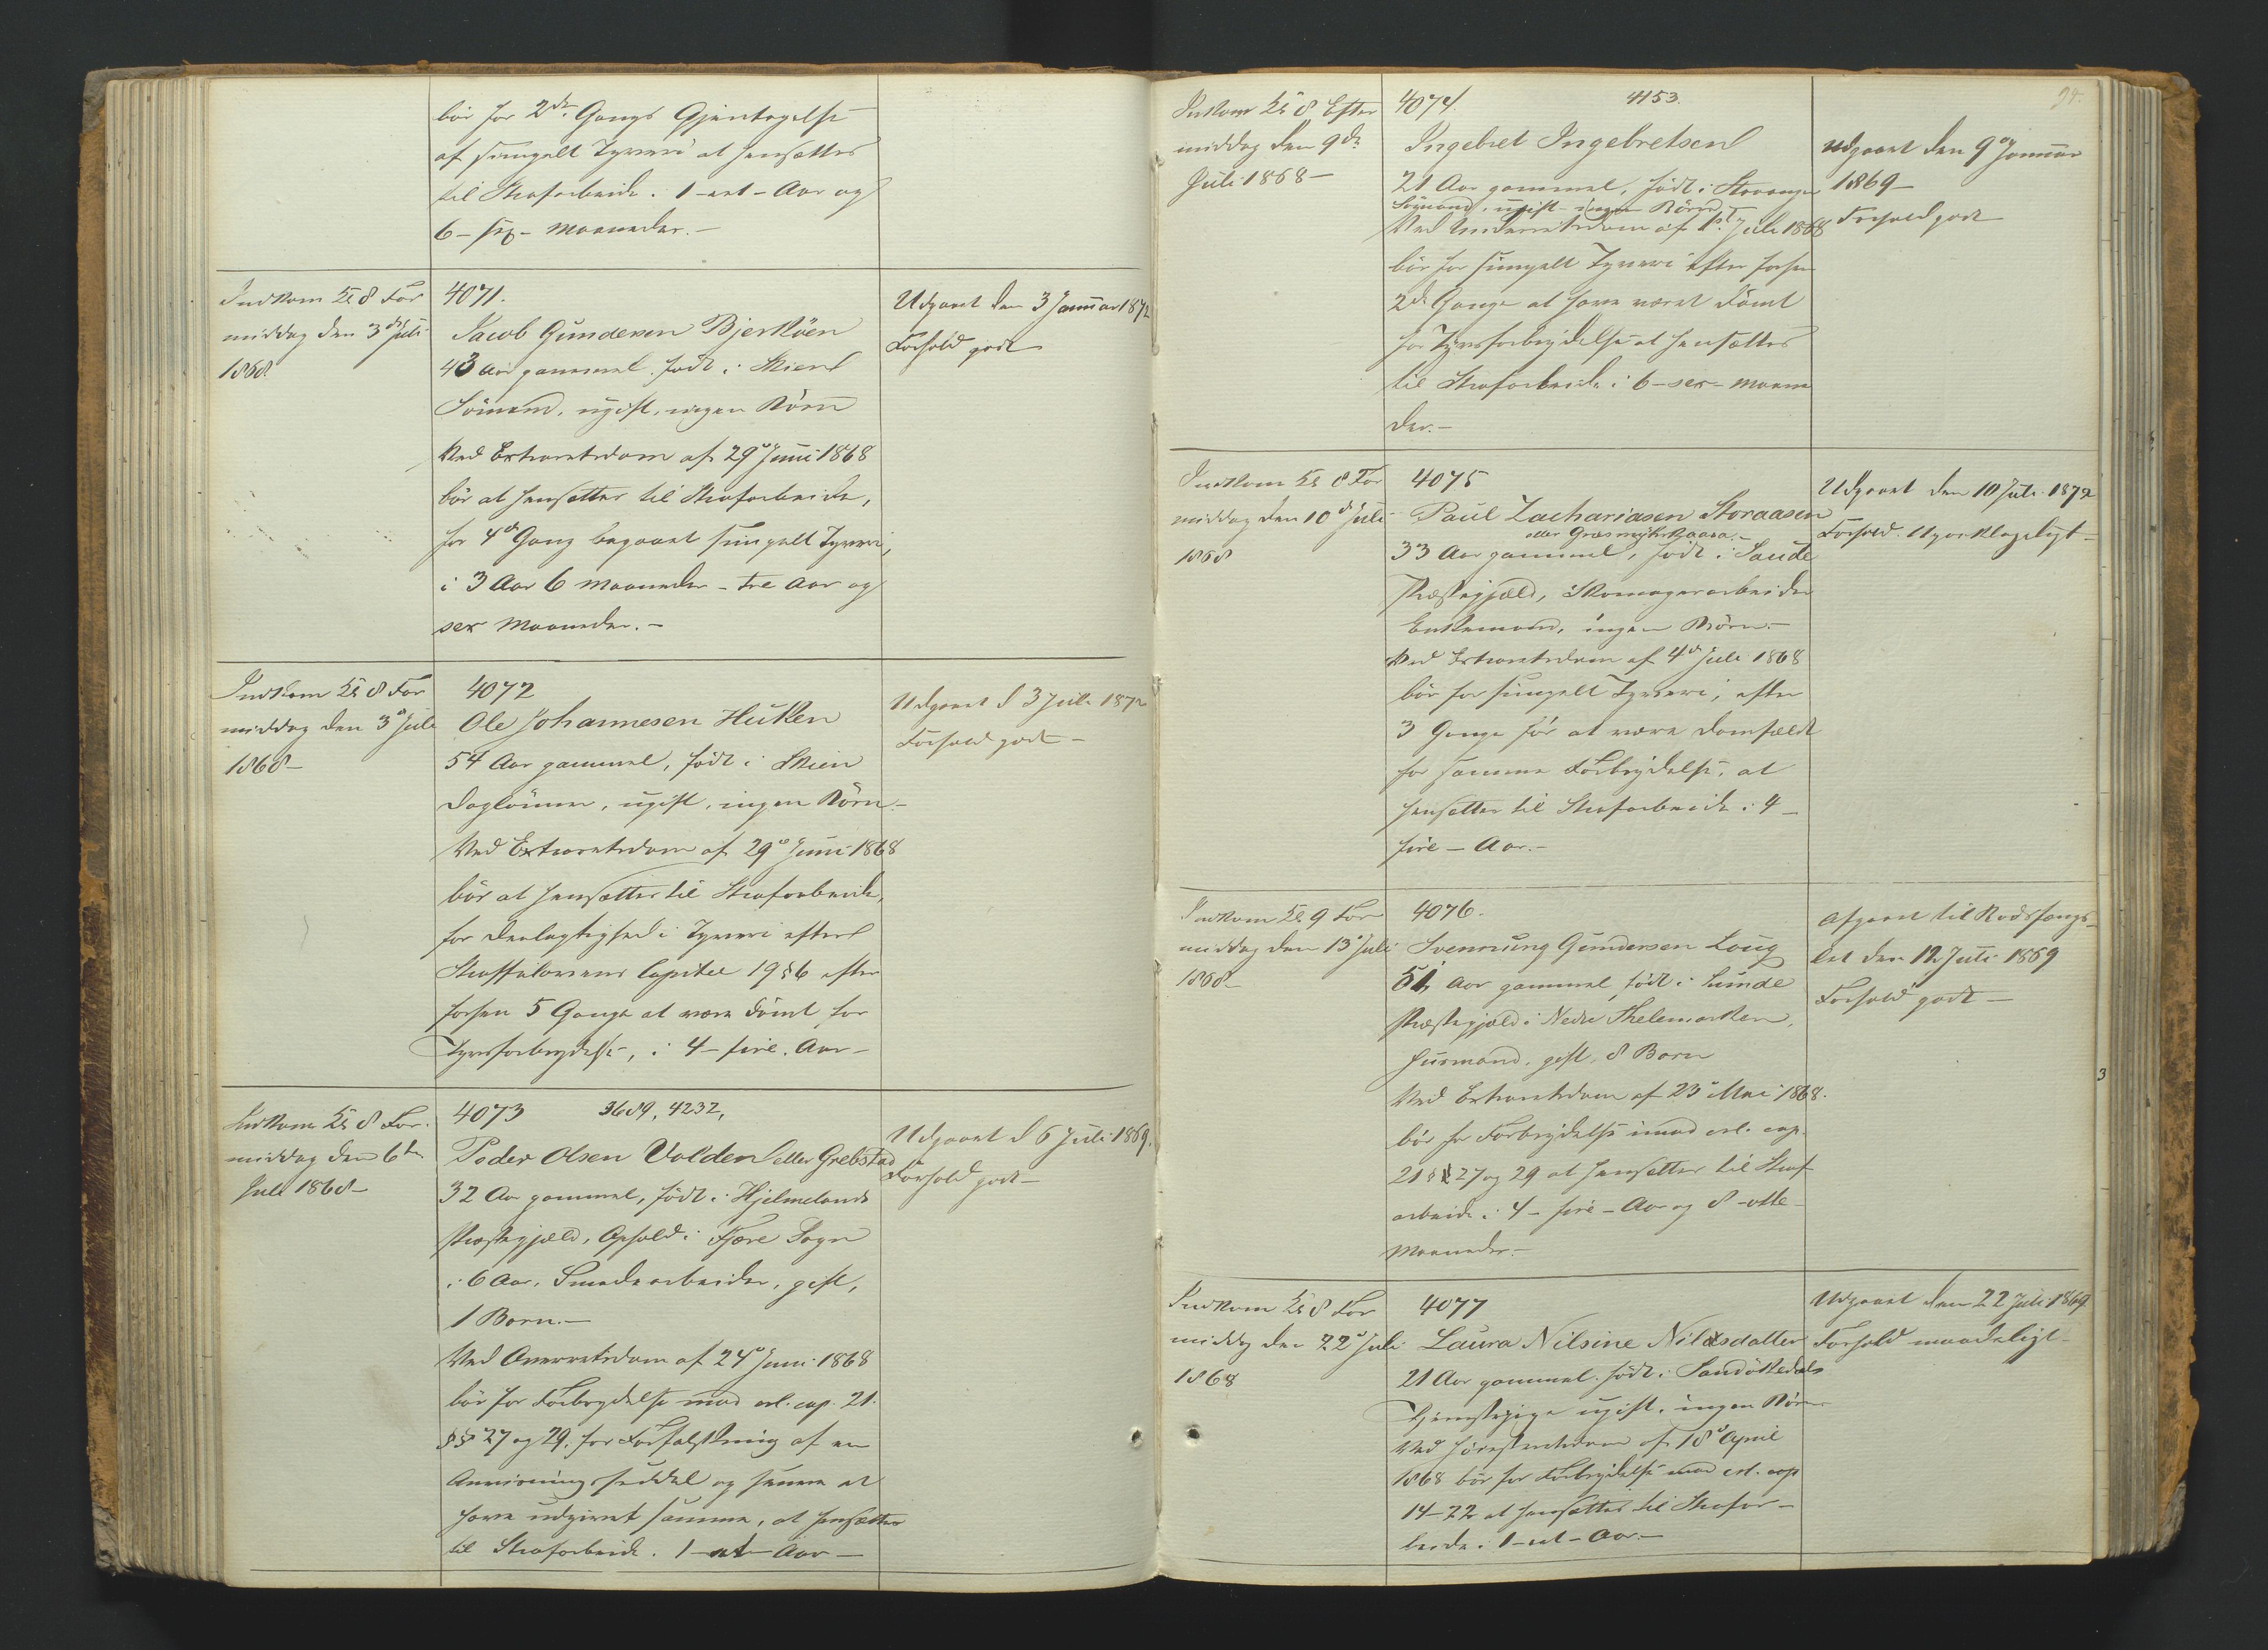 bør for 2den Gangs Gjentagelse
af simpelt Tyveri at hensættes
til Strafarbeide i 1 - eet - Aar og
6 - sex - Maaneder. -
Indkom Kl 8 For
middag den 3die Juli
1868
4071.
Jacob Gundersen Bjerkøen
43 Aar gammel. født i Skien
Sømand, ugift, ingen Børn
Ved Extraretsdom af 29de Juni 1868
bør at hensættes til Strafarbeide,
for 4de Gang begaaet simpelt Tyveri,
i 3 Aar 6 Maaneder - tre Aar og
sex Maaneder. -
Udgaaet den 3 Januar 1872
Forhold godt
Indkom Kl 8 For
middag den 3die Juli
1868 -
4072
Ole Johannesen Huken
54 Aar gammel, født i Skien
Daglønner, ugift, ingen Børn -
Ved Extraretsdom af 29de Juni 1868
bør at hensættes til Strafarbeide,
for Deelagtighed i Tyveri efter
Straffelovens Capitel 19 § 6 efter
forhen 5 Gange at være dømt for
Tyvsforbrydelse, i 4 - fire. Aar -
Udgaaet d 3 Juli 1872
Forhold godt -
Indkom Kl 8 For.
middag den 6te
Juli 1868 -
4073 3689, 4232,
Peder Olsen Valden eller Grebstad
32 Aar gammel, født i Hjelmelands
Præstegjæld, Ophold i Fjære Sogn
i 6 Aar. Smedearbeider, gift,
1 Barn. -
Ved Overretsdom af 24de Juni 1868
bør for Forbrydelse mod crl. cap. 21.
§§ 27 og 29. for Forfalskning af en
Anvisningsseddel og samme at
have udgivet samme, at hensættes
til Strafarbeide i 1 - et - Aar -
Udgaaet d 6 Juli 1869.
Forhold godt -
94.
Indkom Kl 8 Efter
middag den 9de
Juli 1868 -
4074. 4153.
Ingebret Ingebretsen
21 Aar gammel, født i Stavanger
Sømand, ugift - ingen Børn
Ved Underretsdom af 1st Juli 1868
bør for simpelt Tyveri efter forhen
2de Gange at have været dømt
for Tyvsforbrydelse at hensættes
til Strafarbeide i 6 - sex - Maane
der. -
Udgaaet den 9de Januar
1869 -
Forhold godt
Indkom Kl 8 For
middag den 10de Juli
1868
4075
Paul Zachariasen Storaasen
eller Græsmyhrkaasa -
33 Aar gammel, født i Saude
Præstegjæld, Skomagerarbeider
Enkemand, ingen Børn. -
Ved Extraretsdom af 4de Juli 1868
bør for simpelt Tyveri, efter
3 Gange før at være domfældt
for samme Forbrydelse, at
hensættes til Strafarbeide i 4 -
fire - Aar. -
Udgaaet den 10 Juli 1872
Forhold. Upaaklageligt -
Indkom Kl 9 For
middag den 13de Juli
1868 -
4076.
Svennung Gundersen Loug
51 Aar gammel født i Lunde
Præstegjæld i Nedre Thelemarken,
Husmand. gift, 8 Børn
Ved Extraretsdom af 23de Mai 1868.
bør for Forbrydelse imod crl. cap.
21 §§ 27 og 29 at hensættes til Straf
arbeide i 4 - fire - Aar og 8 - otte -
Maaneder. -
Afgaaet til Bodsfængs-
let den 12 Juli 1869
Forhold godt -
Indkom Kl 8 For
middag den 22de Juli
1868
4077
Laura Nilsine Nilsdatter
21 Aar gammel. født i Sandøkedals
Tjenestepige ugift. ingen Børn
Ved Høiesteretsdom af 18de April
1868 bør for Forbrydelse mod crl. cap
14 - 22 at hensættes til Strafar-
beide i 1 - et - Aar. -
Udgaaet den 22 Juli 1869
Forhold maadeligt -
3